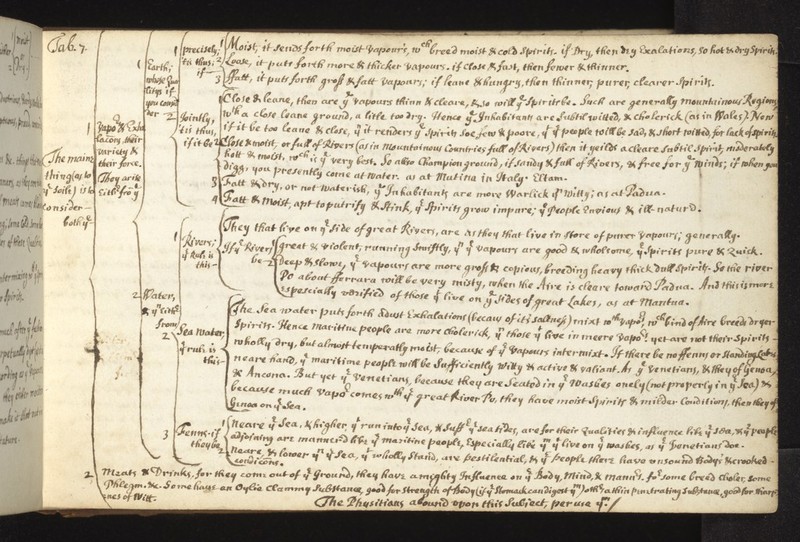 Tab. 7.
The maine
thing (as to
ye soile) is to
consider
both ye
1
Vapors & Exha
lacons, their
variety &
their force.
They arise
Eithr fro ye
1
Earth;
whose Qua
litys if
you consi
der
1
precisely,
'tis thus;
if
1 Moist; it sends forth moist vapours, wch breed moist & cold Spirits. if Dry, then dry Exalations, so hot & dry Spirits.
2 Loose, it puts forth more & thicker vapours. if close & fast, then fewer & thinner.
3 ffatt, it puts forth gross & fatt vapours; if leane & hungry, then thinner, purer, clearer Spirits.
2
Jointly,
'tis thus,
if it be
1
Close & leane, then are ye vapours thinn & cleare, & so will ye Spirits be. Such are generally mountainous Regions
wth a close leane ground, a litle too dry. Hence ye Inhabitants are Subtil witted, & cholerick (as in Wales.) Now
if it be too leane & close, yn it renders ye Spirits soe few & poore, yt ye people will be Sad, & Short witted, for lack of Spirits.
2 Close & moist, or full of Rivers (as in Mountainous Countries full of Rivers) then it yeilds a cleare Subtil Spirit, moderately
hott & moist, wch is ye very best. So also Champion ground, if Sandy & full of Rivers, & free for ye Winds; if when you
digg, you presently come at water. as at Mutina in Italy.
3 Fatt & dry, or not waterish, ye Inhabitants are more Warlick yn Witty; as at Padua.
4 Fatt & moist, apt to putrify & Stink, ye Spirits grow impure; ye people Envious & ill-natur'd.
2 Water,
& yt eithr
from
1
Rivers;
ye Rule is
this
They that live on ye Side of great Rivers, are as they that live in store of purer vapours; generally.
If ye River
be
1 great & violent, running Swiftly, yn ye vapours are good & wholsome, ye Spirits pure & Quick.
2 Deep & Slowe, ye vapours are more gross & copious, breeding heavy thick dull Spirits. So the river
Po about fferrara will be very misty, when the Aire is cleare toward Padua. And this is more
especially verified of those yt live on ye Sides of great Lakes, as at Mantua.
2
Sea water,
ye rule is
this
The Sea water puts forth dust Exhalations (becaus of its saltness) mixt wth vapors, wch kind of Aire breeds dryer
Spirits. Hence maritine people are more cholerick, yn those yt live in meere vapors, yet are not their Spirits
wholly dry, but almost temperatly moist, because of ye vapours intermixt. If there be no ffenns or Standing Lakes
neare hand, ye maritime people will be Sufficiently witty & active & valiant. As ye Venetians, & they of Genoa,
& Ancona. But yet ye Venetians, because they are Seated in ye Washes onely (not properly in ye Sea) &
because much vapor comes wth ye great River Po, they have moist Spirits & milder Conditions, then they of
Genoa on ye Sea.
3 Fenns. if
they be
1 Neare ye Sea, & higher, yt run into ye Sea, & Suffr ye sea tides, are for their Qualities & influence like ye Sea, & ye people
adjoining are manner'd like ye maritine people, Especially like ym yt live on ye washes, as ye Venetians doe.
2 Neare, & lower yn ye Sea, yt wholly Stand, are pestilential, & ye people there have unsound Bodys & crooked
condicons.
2 Meats & Drinks, for they come out of ye Ground, they have a mighty Influence on ye Body, Mind, & manrs. for some breed choler, some
Phlegm. &c. Some have an Oylie Clammy Substance, good for strength of Body (if ye Stomack can digest ym) othrs a thin penetrating Substance, good for sharp-
nes of Witt.
The Physitians abound upon this Subject, peruse ym.